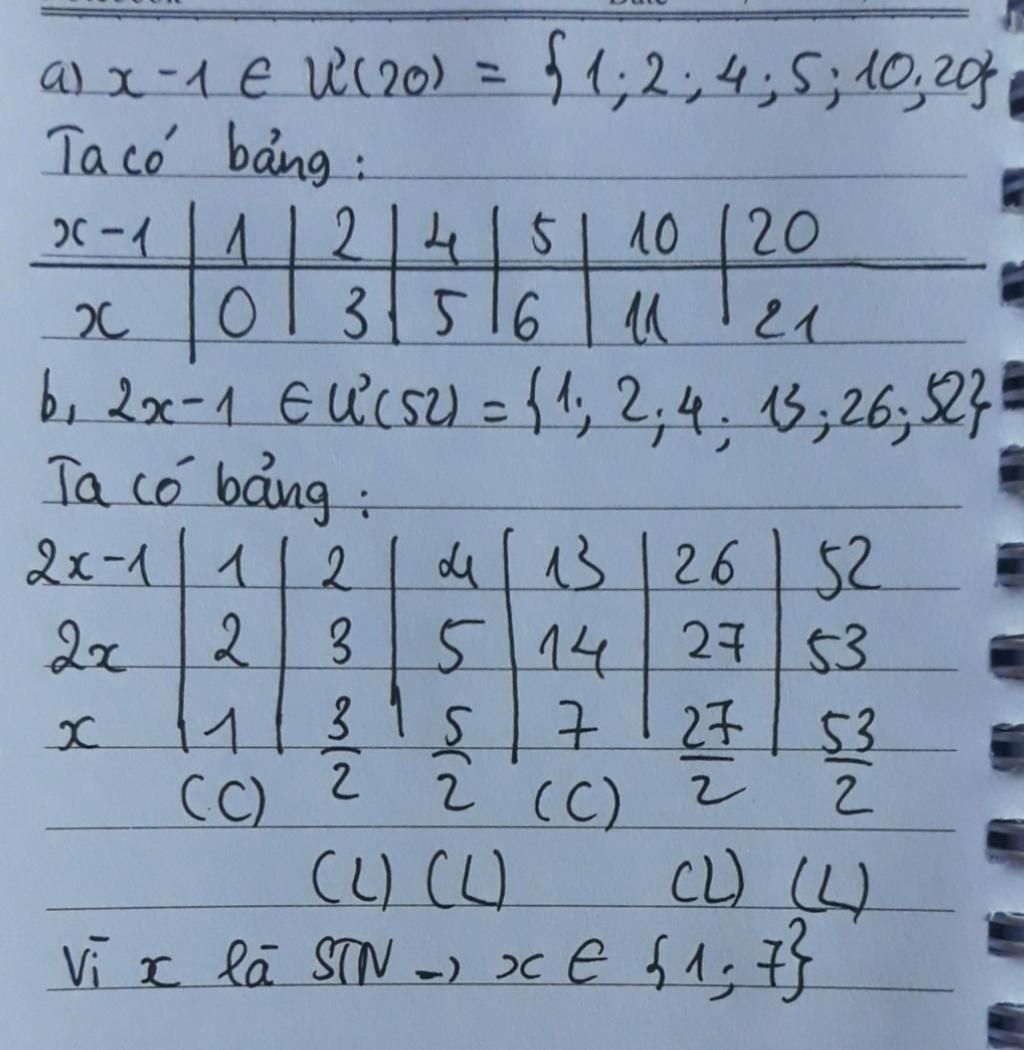 a) x - 1 ∈ Ư(20) = {1; 2; 4; 5; 10; 20}
Ta có bảng:
x - 1 | 1 | 2 | 4 | 5 | 10 | 20
x | 0 | 3 | 5 | 6 | 11 | 21
b, 2x - 1 ∈ Ư(52) = {1; 2; 4; 13; 26; 52}
Ta có bảng:
2x - 1 | 1 | 2 | 4 | 13 | 26 | 52
2x | 2 | 3 | 5 | 14 | 27 | 53
x | 1 | 3/2 | 5/2 | 7 | 27/2 | 53/2
(C) (C)
(L) (L) (L) (L)
Vì x là STN → x ∈ {1; 7}